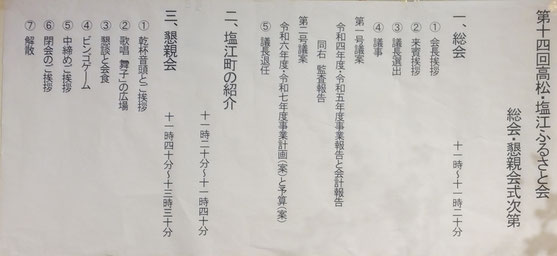 第十四回高松・塩江ふるさと会
総会・懇親会式次第
一、総会　十一時〜十一時二十分
①会長挨拶
②来賓挨拶
③議長選出
④議事
第一号議案
令和四年度・令和五年度事業報告と会計報告
同右　監査報告
第二号議案
令和六年度・令和七年度事業計画(案)と予算(案)
⑤議長退任
二、塩江町の紹介　十一時二十分〜十一時四十分
三、懇親会　十一時四十分〜十三時三十分
①乾杯音頭とご挨拶
②歌唱　舞子の広場
③懇談と会食
④ビンゴゲーム
⑤中締めご挨拶
⑥閉会のご挨拶
⑦解散